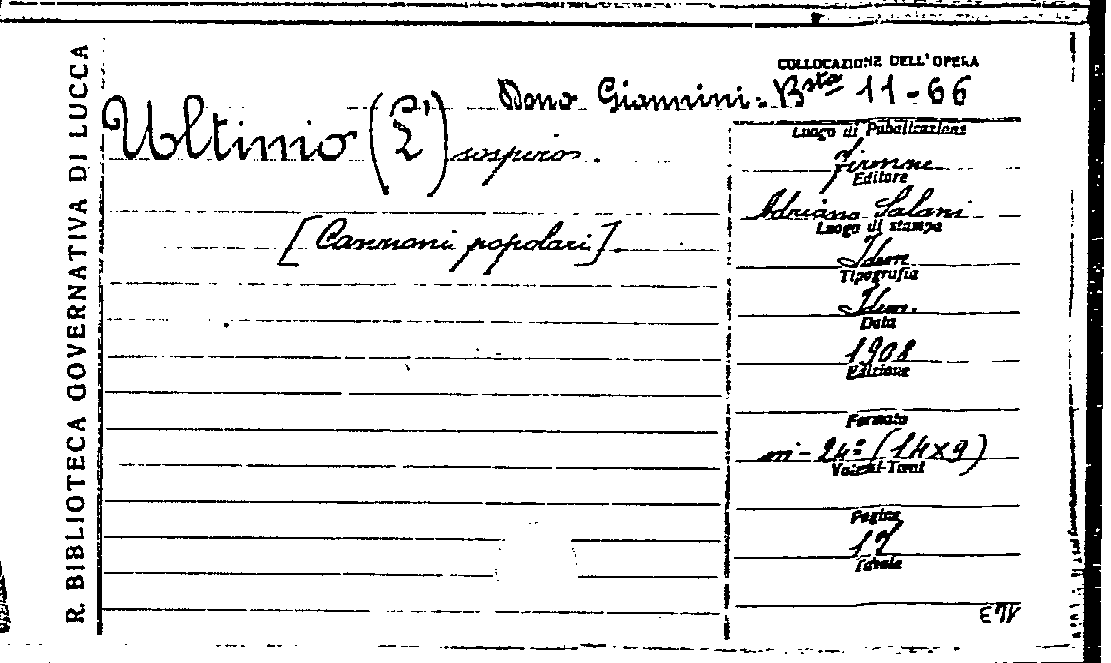 R. BIBLIOTECA GOVERNATIVA DI LUCCA
COLLOCAZIONE DELL'OPERA
Dono Giannini - Bsta 11-66
Ultimo (L') sospiro.
[Canzoni popolari].
Luogo di Pubblicazione
Firenze
Editore
Adriano Salani
Luogo di stampa
Idem
Tipografia
Idem.
Data
1908
Edizione
Formato
in-24º (14x9)
Volumi-Tomi
Pagine
17
Tavole